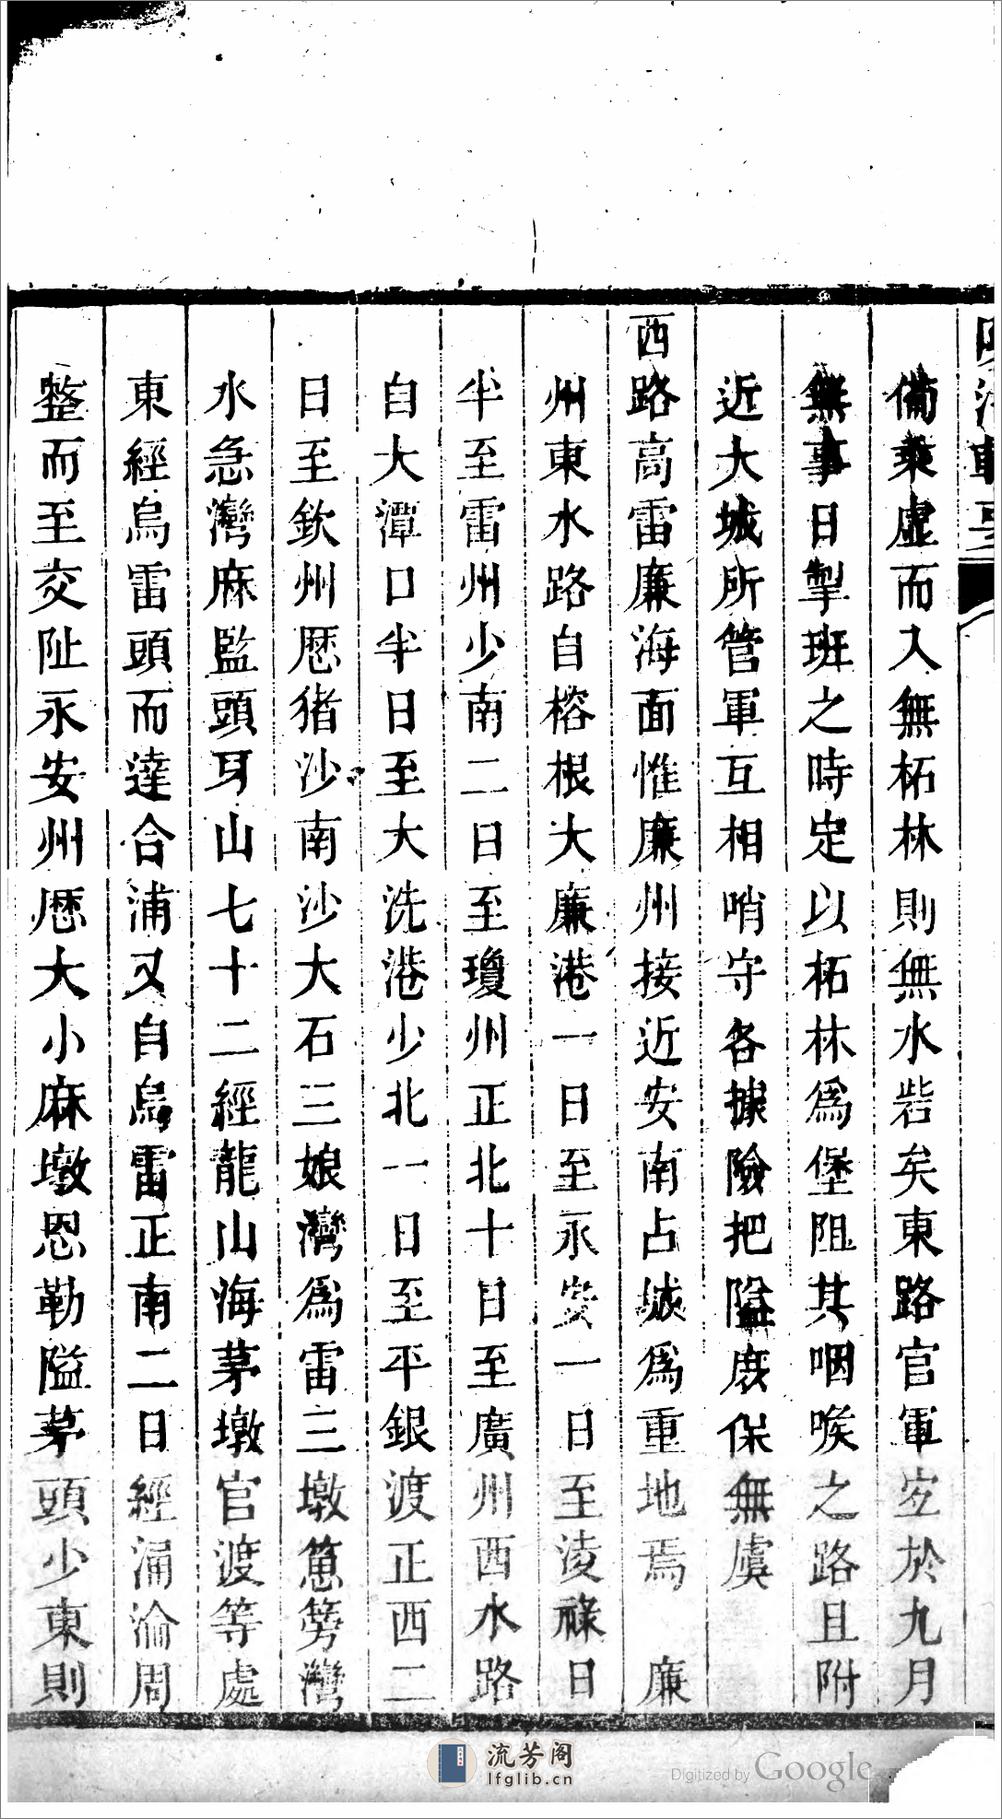 備乘虛而入無柘林則無水砦矣東路官軍定於九月
無事日掣班之時定以柘林爲堡阻其咽喉之路且附
近大城所管軍互相哨守各據險把隘庶保無虞
西路高雷廉海面惟廉州接近安南占城爲重地焉 廉
州東水路自榕根大廉港一日至永安一日至淩祿日
半至雷州少南二日至瓊州正北十日至廣州西水路
自大潭口半日至大洗港少北一日至平銀渡正西二
日至欽州厯猪沙南沙大石三娘灣爲雷三墩蒠簩灣
水急灣麻監頭牙山七十二經龍山海茅墩官渡等處
東經烏雷頭而達合浦又自烏雷正南二日經涌淪周
整而至交阯永安州厯大小麻墩恩勒隘茅頭少東則
流芳阁
lfglib.cn
Digitized by Google